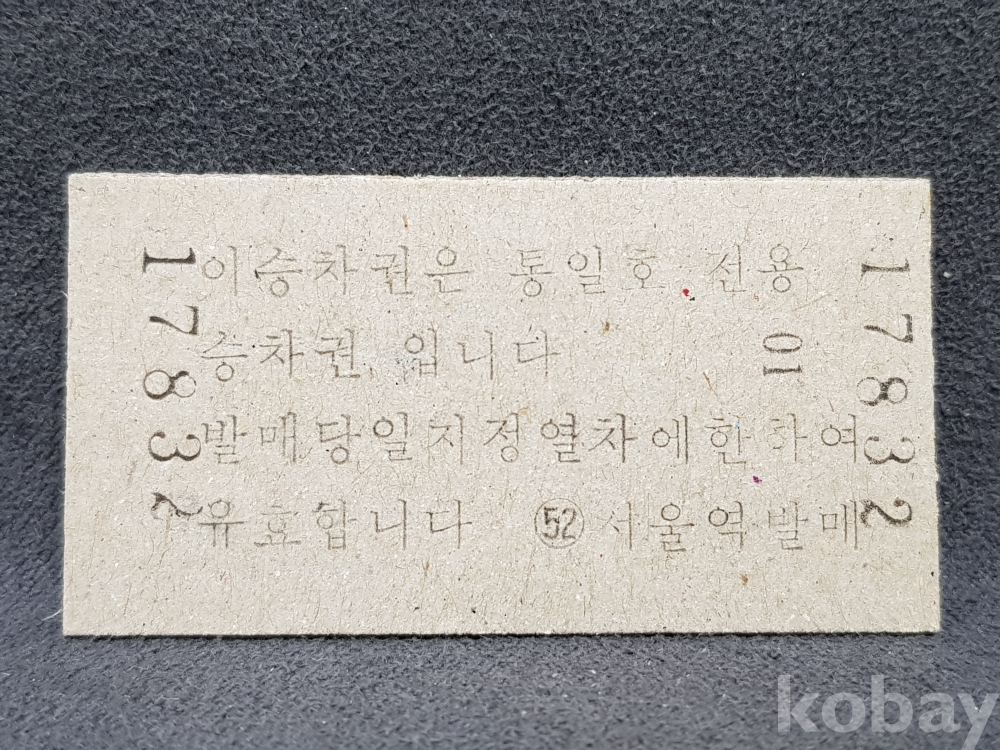 이승차권은 통일호 전용
승차권 입니다
01
발매당일지정열차에한하여
유효합니다 52 서울역발매
17832
17832
kobay